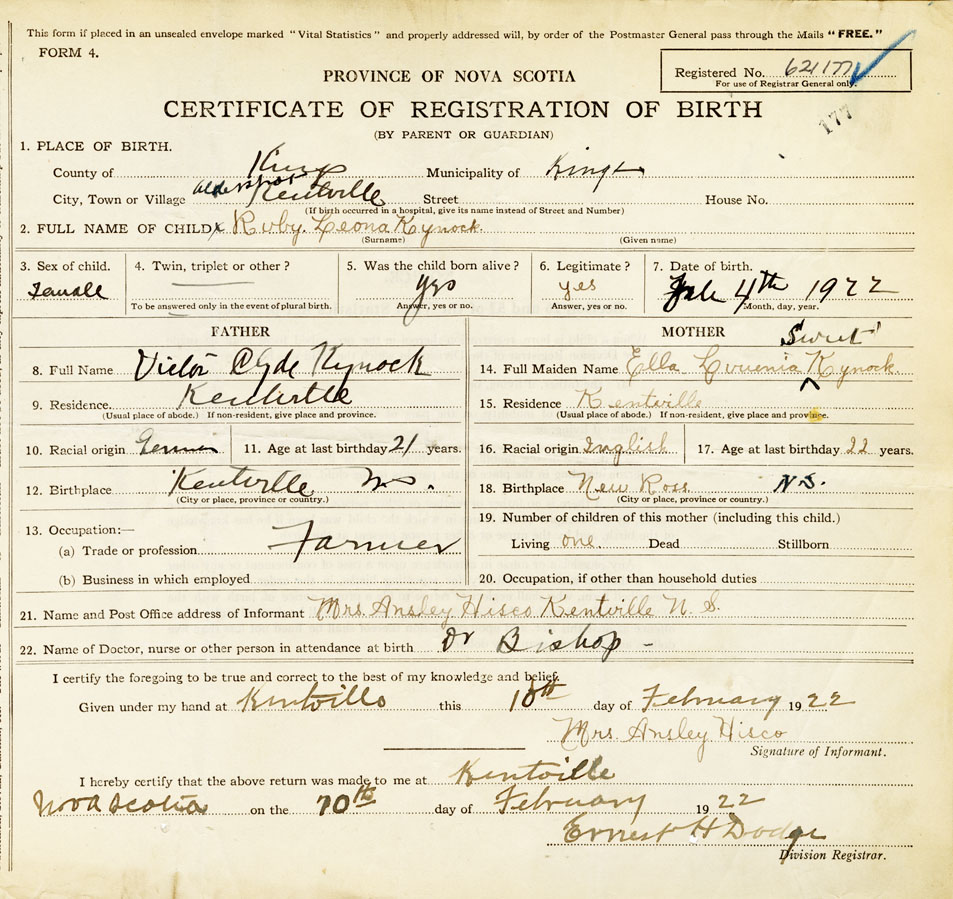 This form if placed in an unsealed envelope marked "Vital Statistics" and properly addressed will, by order of the Postmaster General pass through the Mails "FREE."
FORM 4.
PROVINCE OF NOVA SCOTIA
Registered No.
For use of Registrar General only.
CERTIFICATE OF REGISTRATION OF BIRTH
177
(BY PARENT OR GUARDIAN)
1. PLACE OF BIRTH.
County of Kings Municipality of Kings
Aldershot
City, Town or Village Kentville Street House No.
(If birth occurred in a hospital, give its name instead of Street and Number)
2. FULL NAME OF CHILD Ruby Leona Kynock
(Surname) (Given name)
3. Sex of child. 4. Twin, triplet or other? 5. Was the child born alive? 6. Legitimate? 7. Date of birth.
Female yes yes Feb 4th 1922
To be answered only in the event of plural birth. Answer, yes or no. Answer, yes or no. Month, day, year.
FATHER
8. Full Name Victor Clyde Kynock
9. Residence Kentville
(Usual place of abode.) If non-resident, give place and province.
10. Racial origin German 11. Age at last birthday 21 years.
12. Birthplace Kentville N.S.
(City or place, province or country.)
13. Occupation:—
(a) Trade or profession Farmer
(b) Business in which employed
MOTHER
Swet
14. Full Maiden Name Ella Kynock
15. Residence Kentville
(Usual place of abode.) If non-resident, give place and province.
16. Racial origin English 17. Age at last birthday 22 years.
18. Birthplace New Ross N.S.
(City or place, province or country.)
19. Number of children of this mother (including this child.)
Living one Dead Stillborn
20. Occupation, if other than household duties
21. Name and Post Office address of Informant Mrs. Ansley Hisco Kentville N. S.
22. Name of Doctor, nurse or other person in attendance at birth Dr Bishop -
I certify the foregoing to be true and correct to the best of my knowledge and belief.
Given under my hand at Kentville this 10th day of February 1922
Mrs. Ansley Hisco
Signature of Informant.
I hereby certify that the above return was made to me at Kentville
Nova Scotia on the day of February 1922
Ernest H Dodge
Division Registrar.